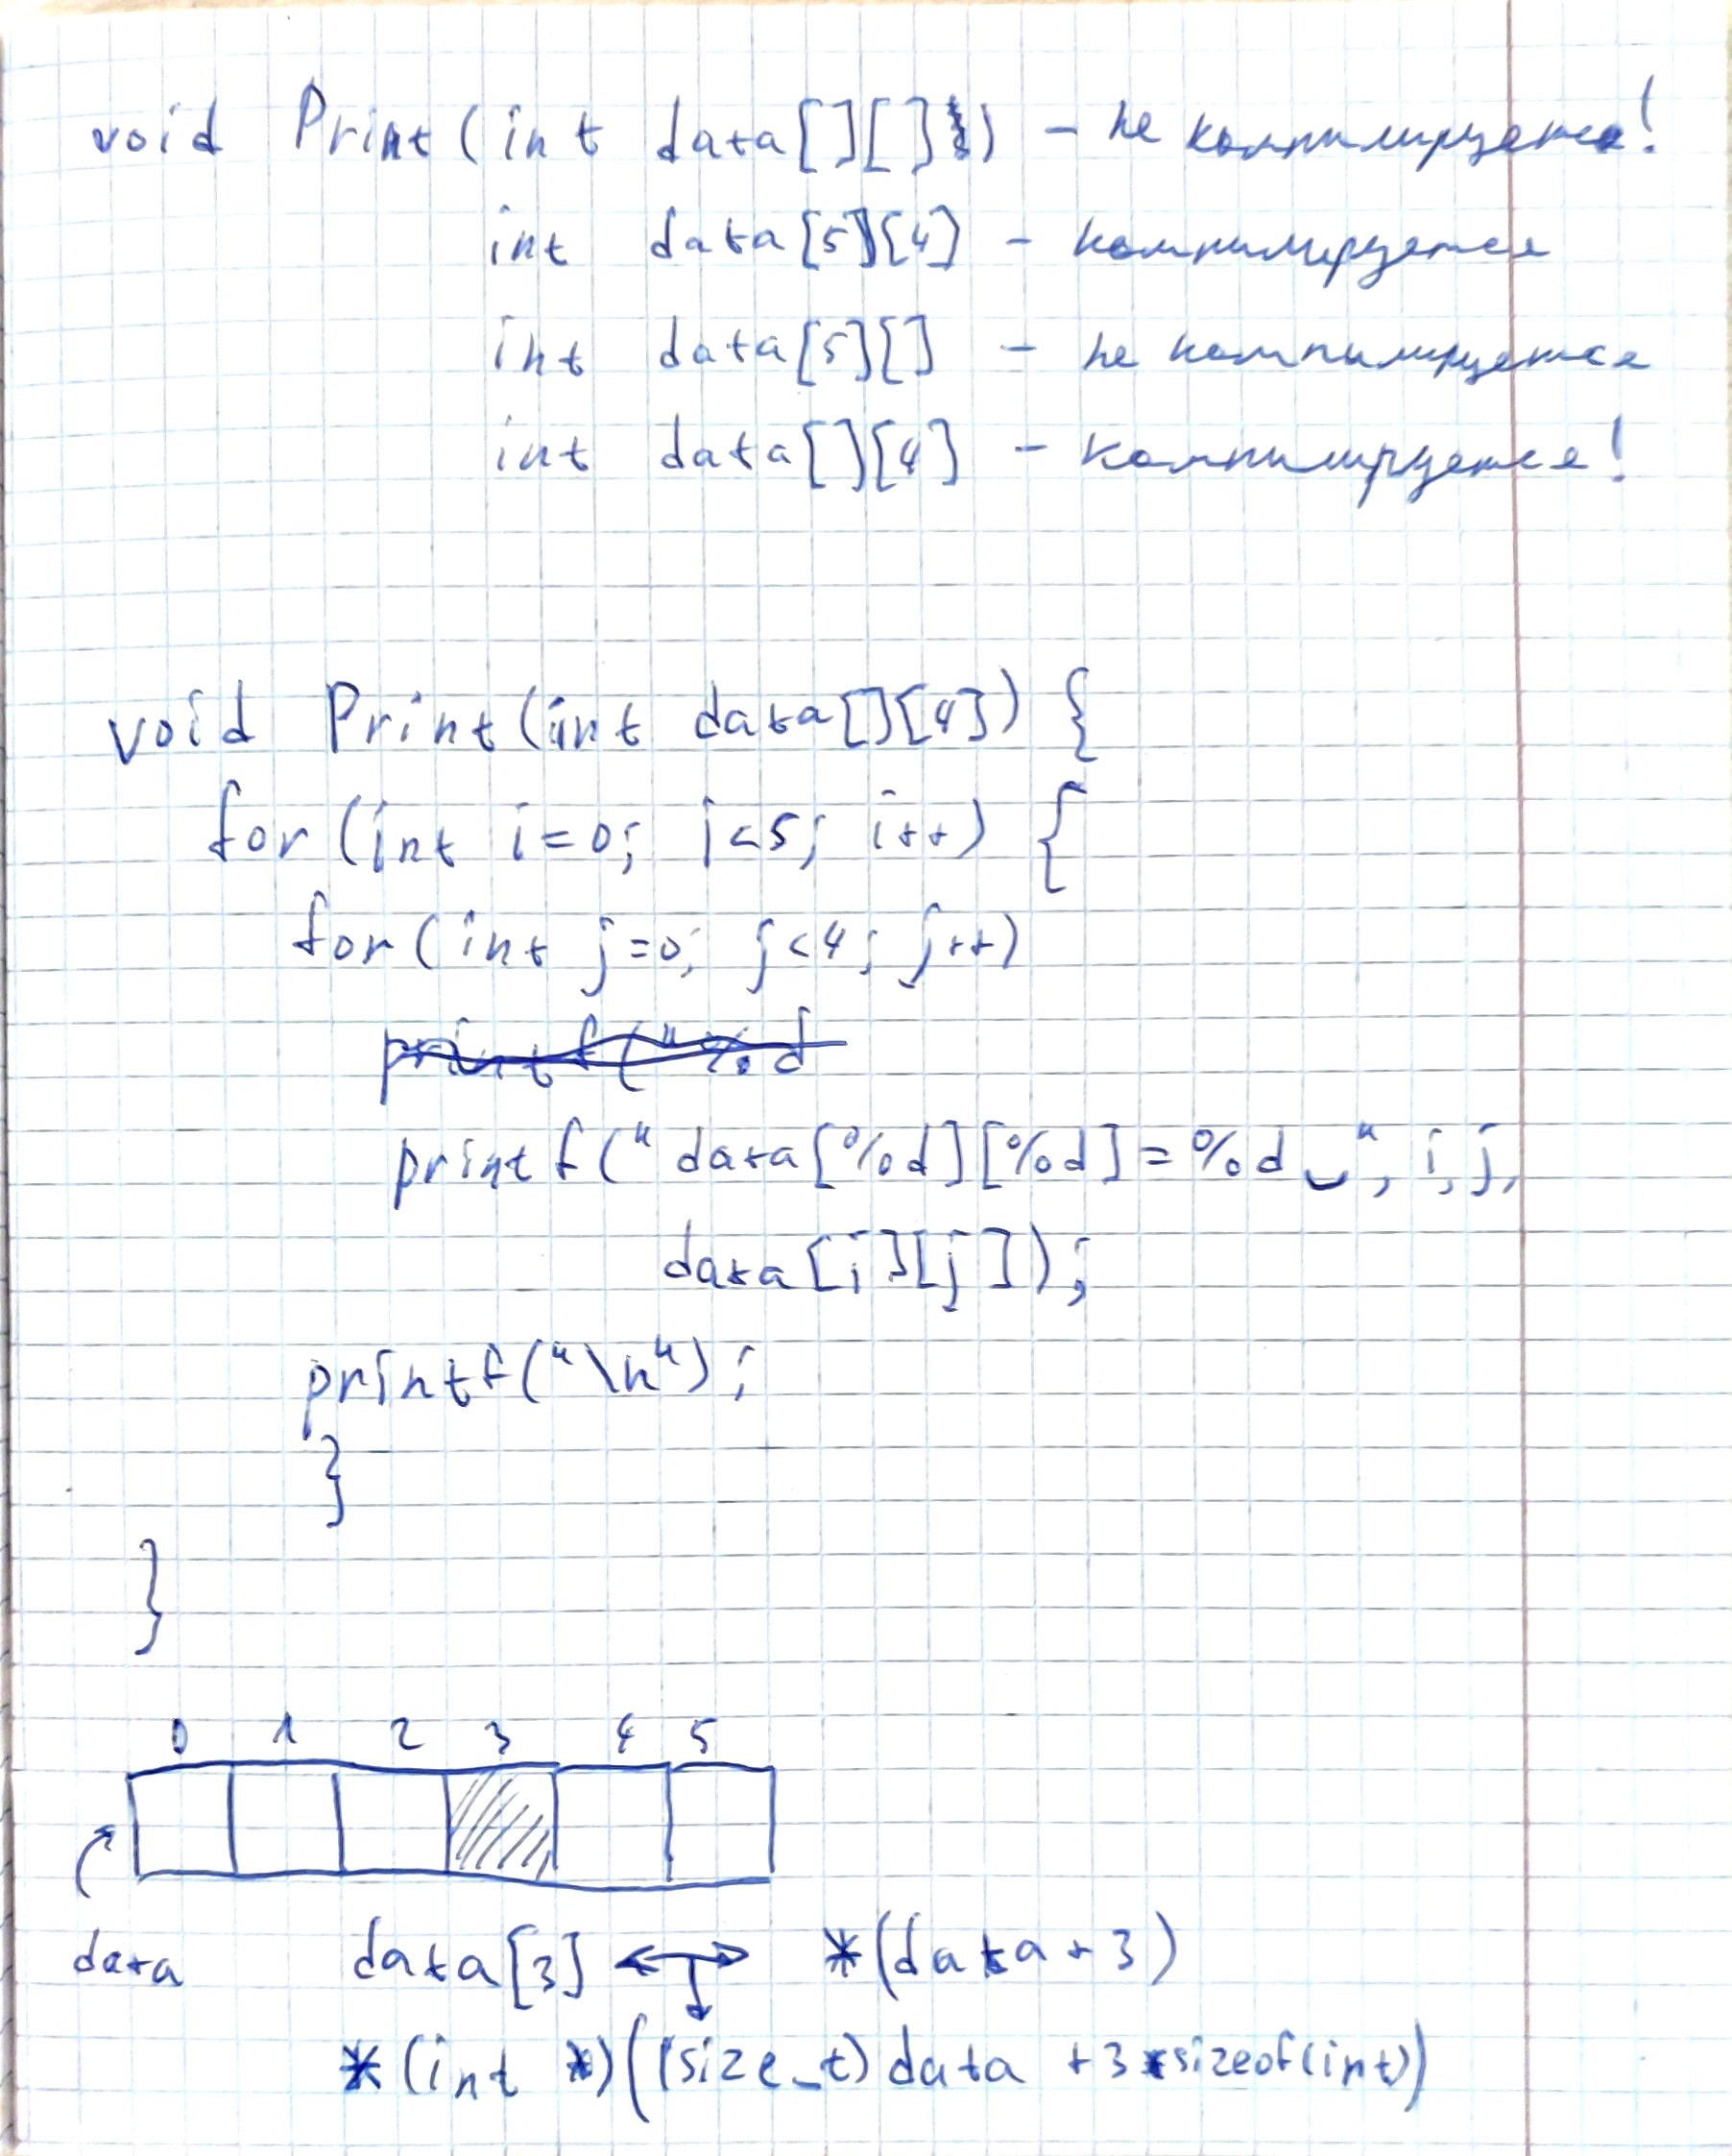 void Print(int data[][]) - не компилируется!
int data[5][4] - компилируется
int data[5][] - не компилируется
int data[][4] - компилируется!
void Print(int data[][4]) {
for (int i=0; i<5; i++) {
for(int j=0; j<4; j++)
printf("%d
printf("data[%d][%d]=%d␣", i,j,
data[i][j]);
printf("\n");
}
}
0 1 2 3 4 5
data data[3] ↔ *(data+3)
*(int *)((size_t) data +3*sizeof(int))